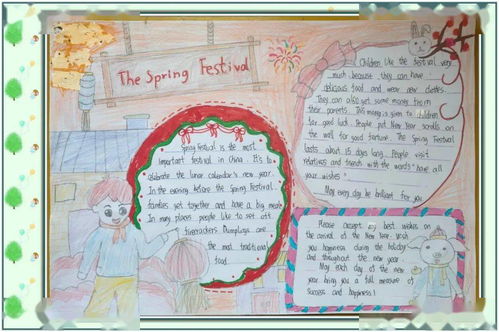 The Spring Festival
Spring Festival is the most
important festival in China. It's to
celebrate the lunar calendar's new year.
In the evening before the Spring Festival.
families get together and have a big meal.
In many places people like to set off
firecrackers. Dumplings are
the most traditional
food.
Children like the festival very
much because they can have
delicious food and wear new clothes.
They can also get some money from
their parents. This money is given to children
for good luck. People put New Year scrolls on
the wall for good fortune. The Spring Festival
lasts about 15 days long. People visit
relatives and friends with the words "have all
your wishes".
May every day be brilliant for you
Please accept my best wishes on
the arrival of the New Year. wish
you happiness during the holiday
and throughout the new year.
May each day of the new
year bring you a full measure of
success and happiness!